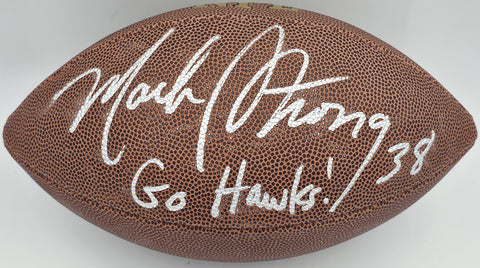 Mack Strong 38
Go Hawks!